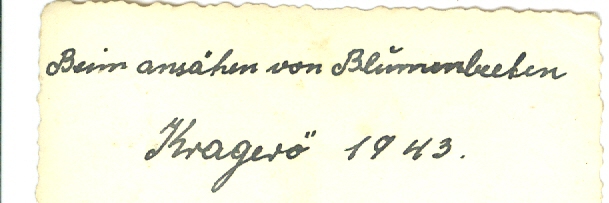 Beim ansähen von Blumenbeeten
Kragerö 1943.